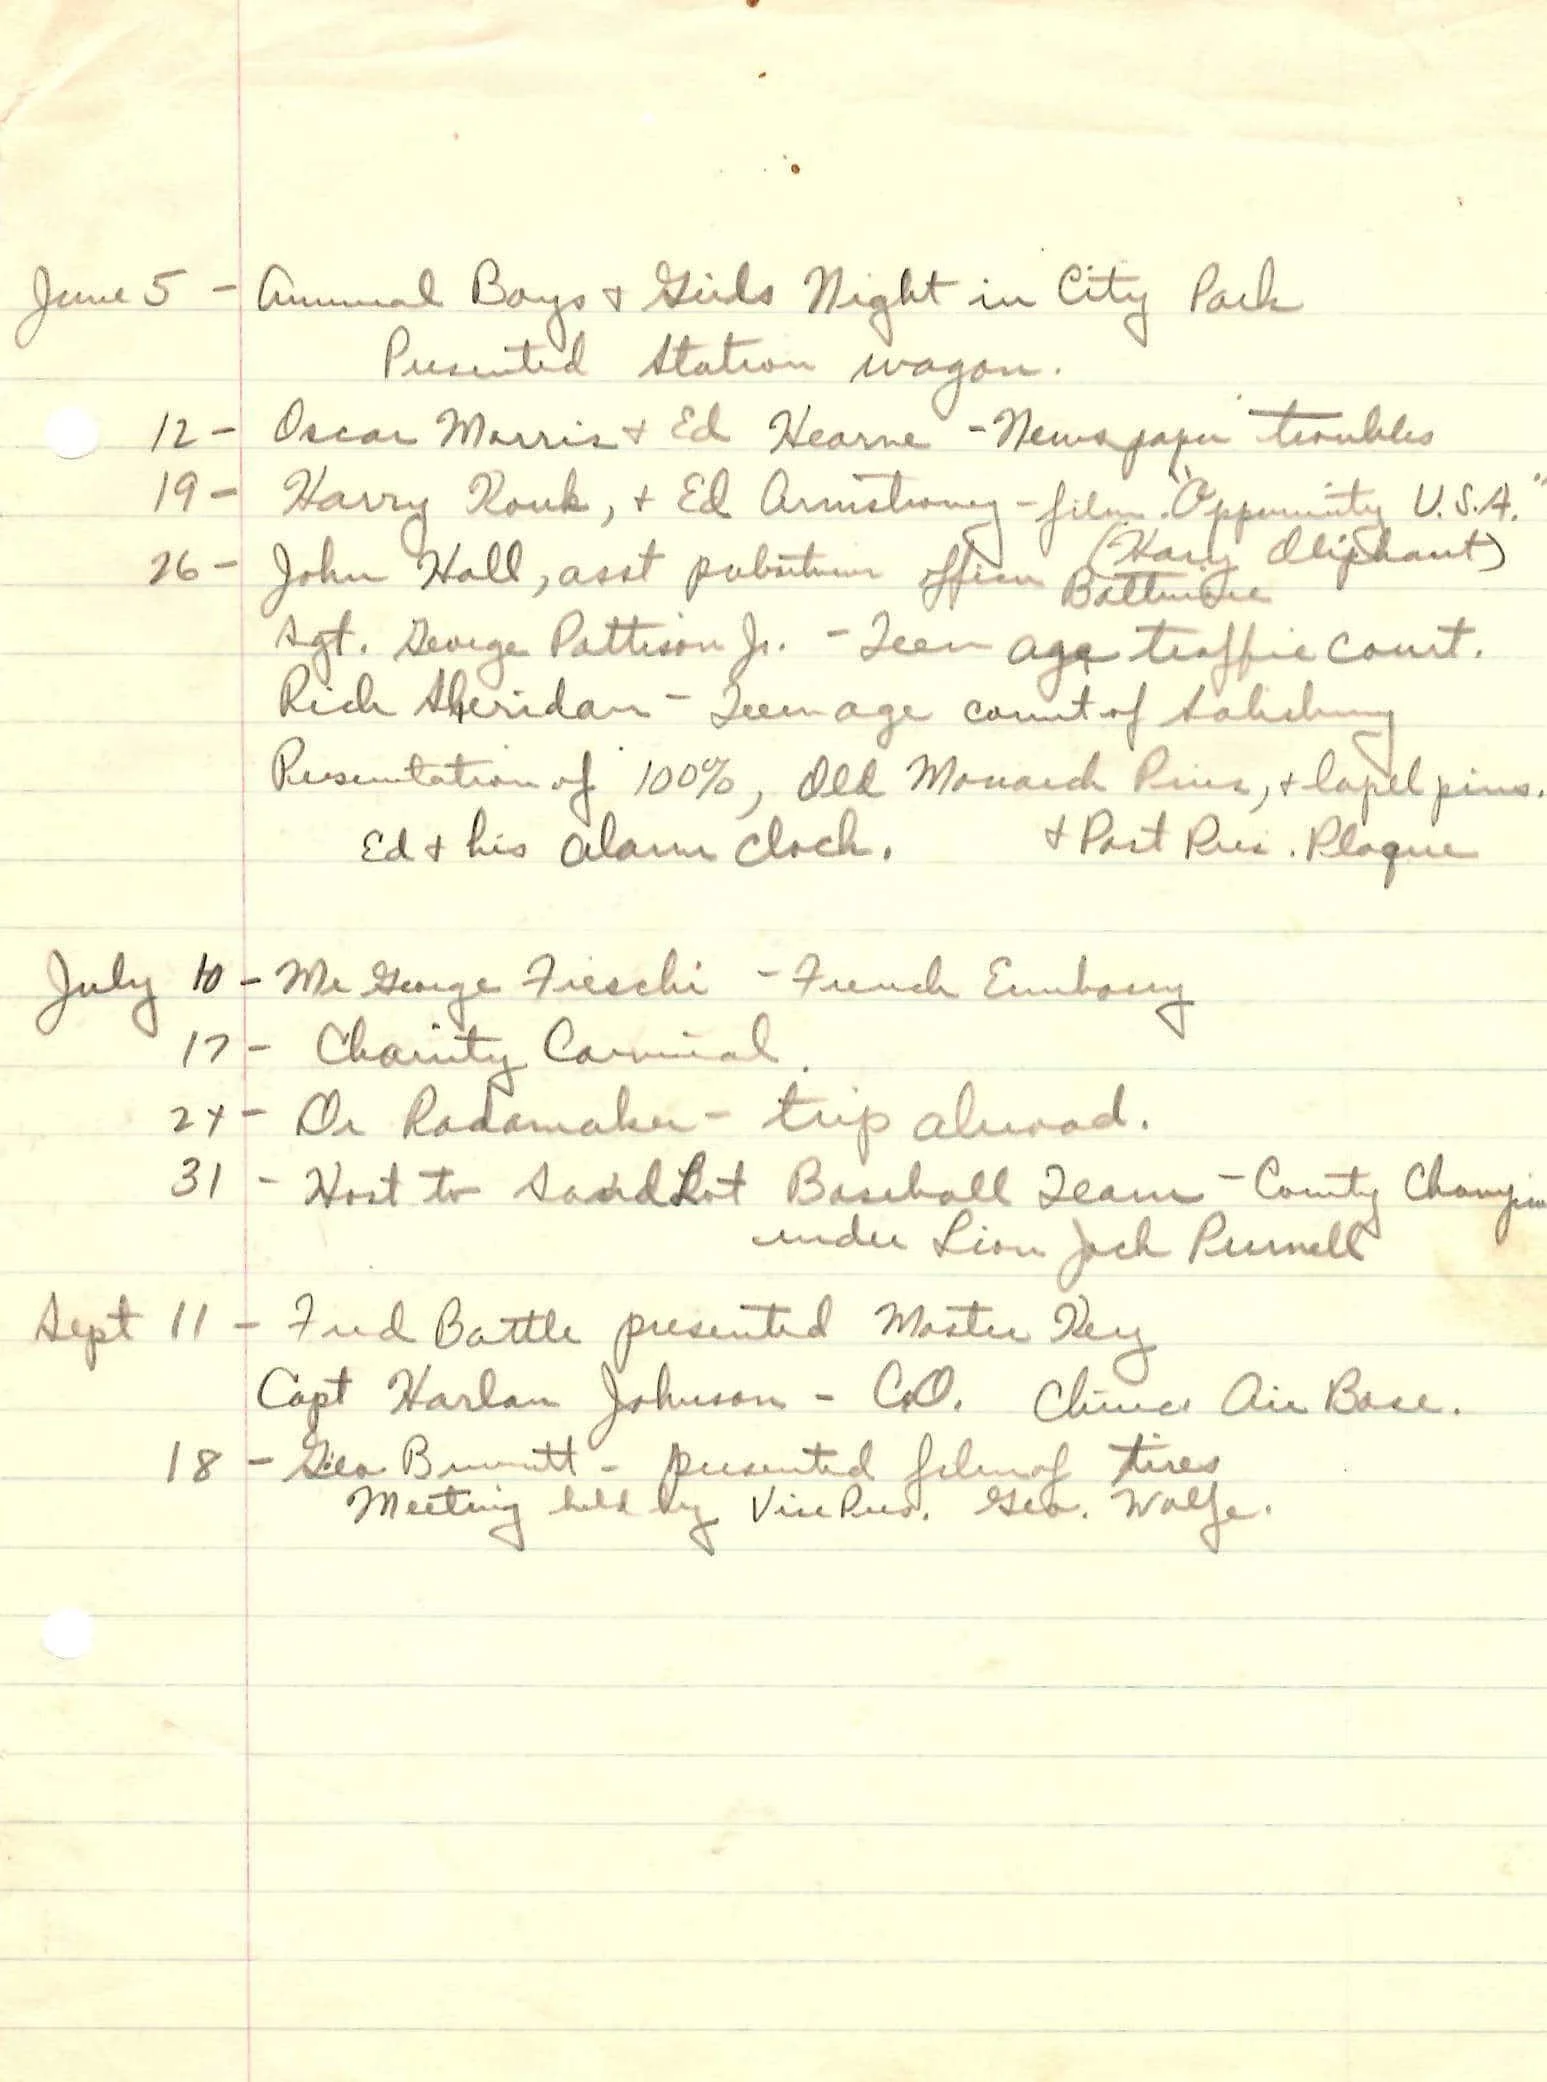 June 5 - Annual Boys & Girls Night in City Park
Presented Station wagon.
12 - Oscar Morris & Ed Hearne - Newspaper troubles
19 - Harry Rouk, & Ed Armstrong - film "Oppunity U.S.A."
(Harry Oliphant)
26 - John Hall, asst officer Baltimore
Sgt. George Pattison Jr. - Teen age traffic court.
Rich Sheridan - Teenage court of Salisbury
Presentation of 100%, Old Monarch Pins, & lapel pins.
Ed & his alarm clock. & Past Pres. Plaque
July 10 - Mr George Fieschi - French Embassy
17 - Charity Carnival.
24 - Dr Radamaker - trip abroad.
31 - Host to Sand Lot Baseball Team - County Champion
under Lion Jack Purnell
Sept 11 - Fred Battle presented Master Key
Capt Harlan Johnson - C.O. Air Base.
18 - Geo - presented film of tires
Meeting held by Vice Pres. Geo. Wolfe.